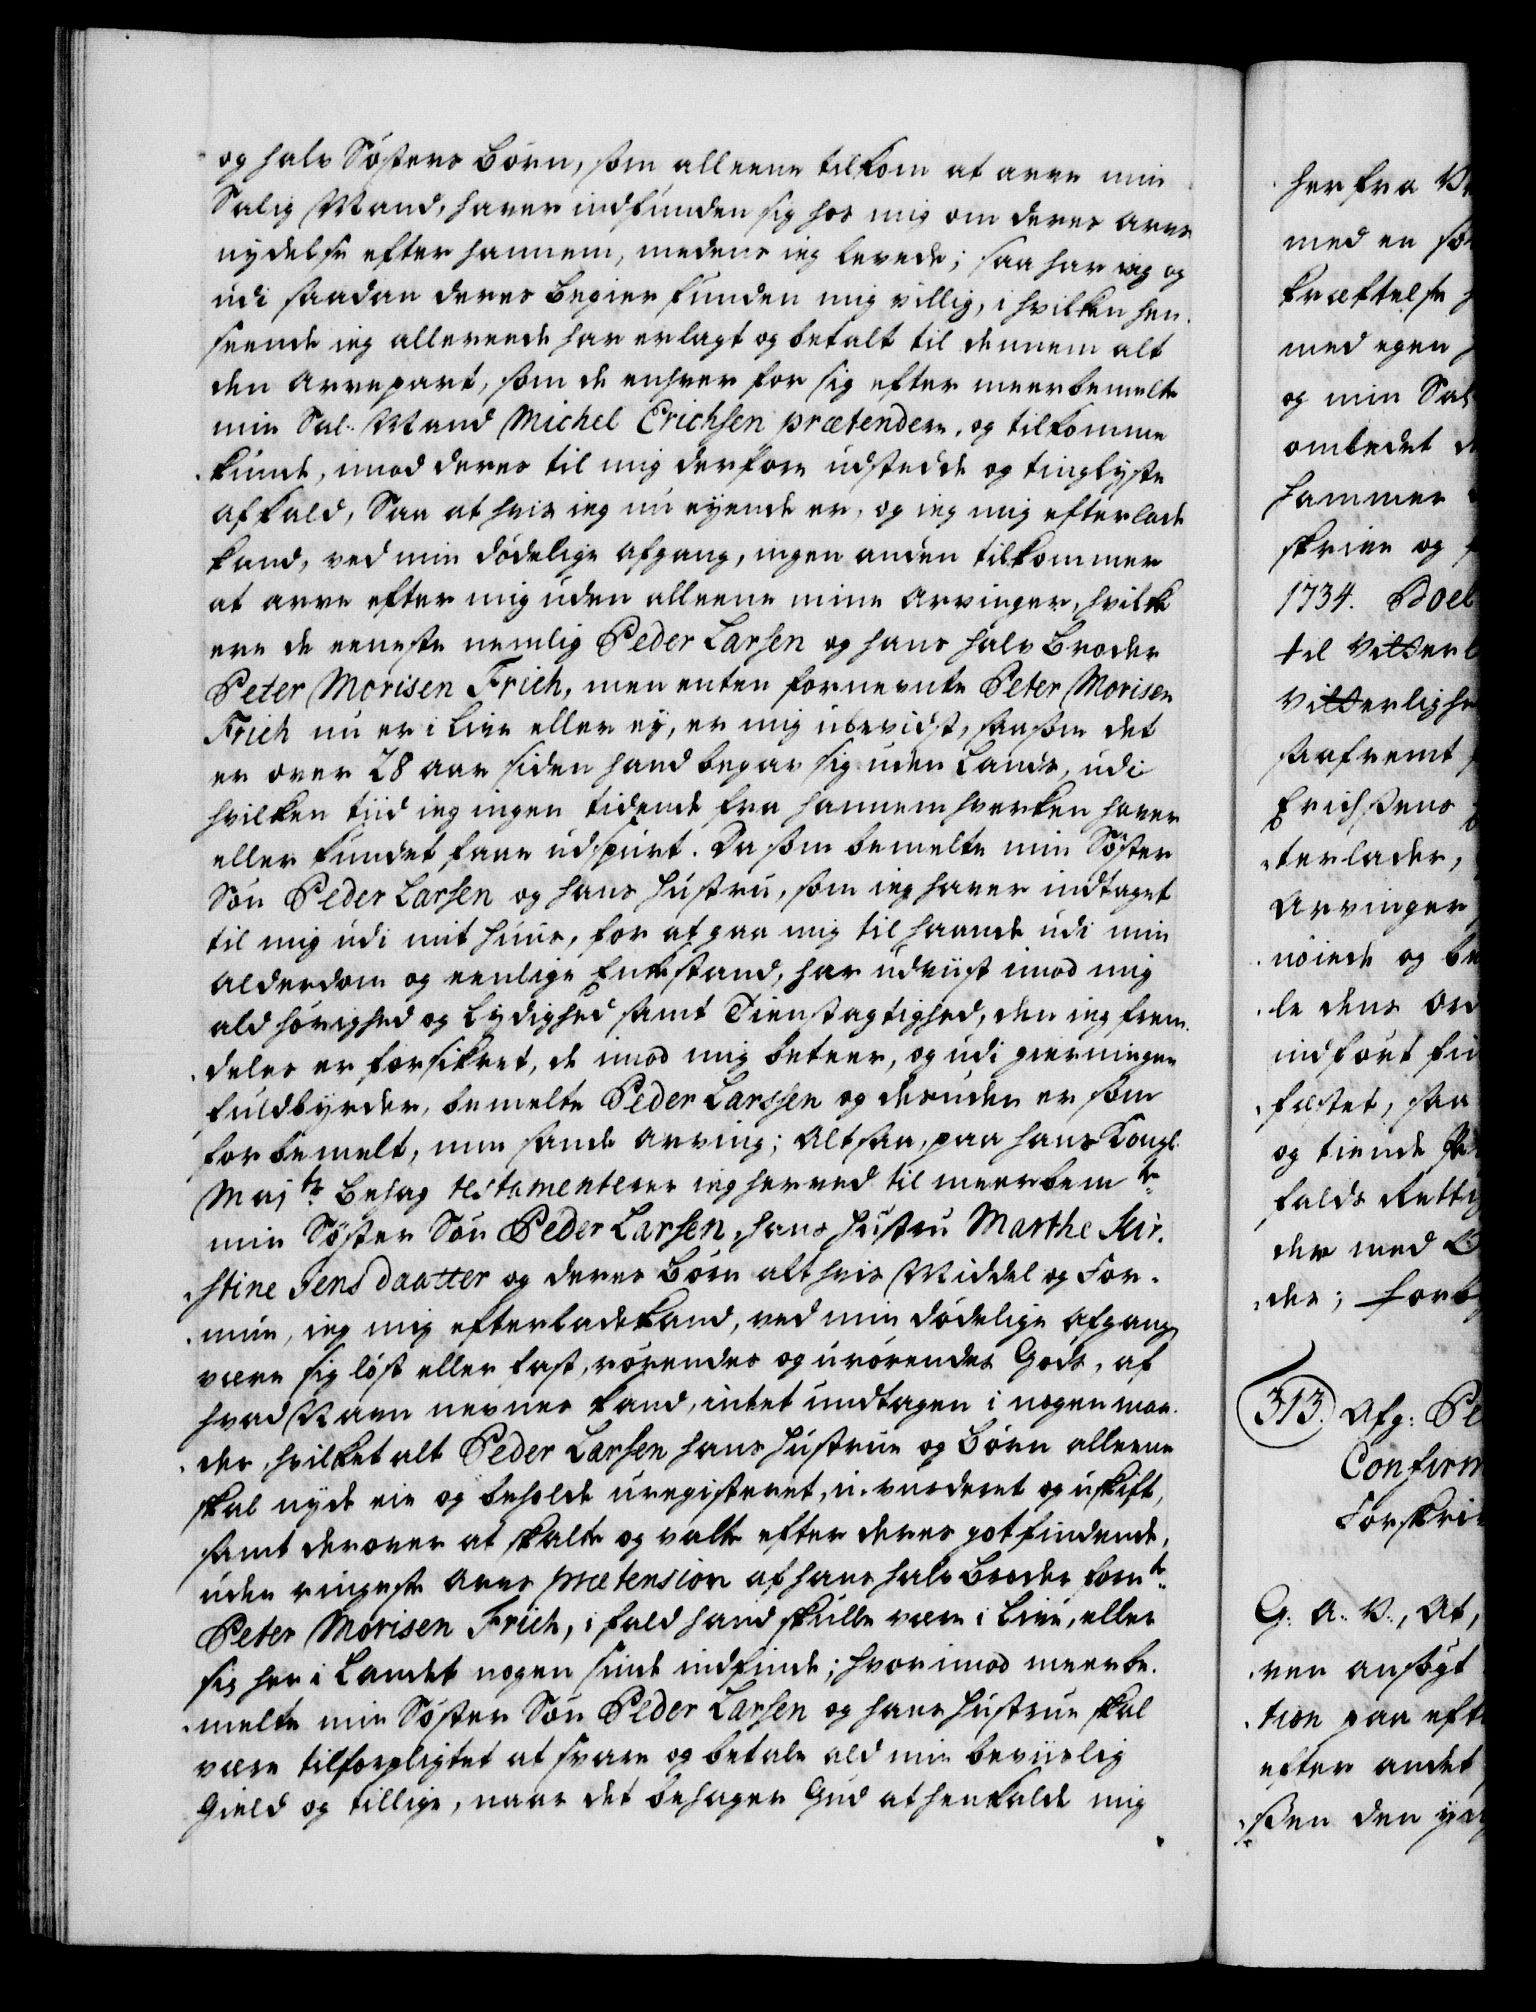 og halv Søsters Børn, som alleene tilkom at arve min
Salig Mand, haver indfunden sig hos mig om deres arvs
nydelse efter hannem, medens ieg levede; saa har ieg og
udi saadan deres begier funden mig villig, i hvilken hen-
seende ieg allereede har erlagt og betalt til dennem alt
den Arvepart, som de enhver for sig efter meerbemelte
min Sal. Mand Michel Erichsen prætendere, og tilkomme
kunde, imod deres til mig derfore udstedde og tinglyste
afkald, Saa at hvis ieg nu eyende er, og ieg mig efterlade
kand, ved min dødelige afgang, ingen anden tilkommer
at arve efter mig uden alleene mine Arvinger, hvilke
ere de eeneste nemlig Peder Larsen og hans halv Broder
Peter Morisen Frich, men enten fornevnte Peter Morisen
Frich nu er i Live eller ey, er mig ubevidst, saasom det
er over 28 aar siden hand begav sig uden Lands, udi
hvilken tiid ieg ingen tidende fra hannem hverken haver
eller kundet faae udspurt. Da som bemelte min Søster
Søn Peder Larsen og hans Hustru, som ieg haver indtaget
til mig udi mit Huus, for at gaae mig til haande udi min
Alderdom og eenlige Enkestand, har udviist imod mig
ald hørighed og Lydighed samt Tienstagtighed, den ieg frem-
deles er forsikret, de imod mig beteer, og udi gierningen
fuldbyrder, bemelte Peder Larssen og desuden er som
forbemelt, min sande Arving; Altsaa, paa hans Kongl.
Majts. Behag testamenterer ieg herved til meerbemte.
min Søster Søn Peder Larsen, hans Hustru Marthe Kir-
stine Jensdaatter og deres Børn alt hvis Middel og For-
mue, ieg mig efterlade kand, ved min dødelige afgang
være sig løst eller fast, rørendes og urørendes Gods, af
hvad Navn nevnes kand, intet undtagen i nogen maa-
der, hvilket alt Peder Larsen hans Hustrue og Børn alleene
skal nyde eie og beholde uregisteret, u-vurderet og uskift,
samt derover at skalte og valte efter deres gotfindende,
uden ringeste Arvs prætension af hans halv Broder fornte.
Peter Morisen Frich, i fald hand skulle være i Live, eller
sig her i Landet nogen sinde indfinde; hvorimod meerbe-
melte min Søster Søn Peder Larsen og hans Hustrue skal
være tilforpligtet at svare og betale ald min beviislig
Gield og tillige, naar det behager Gud at henkalde mig
her fra
med en
kræftelse
med egen
og min Sal
ombedet
Hammer
skrive og
1734. Boel
til Vitterl
Vitterlighe
saafremt
Erichsens
terlader,
Arvinger
nøiede og be
le dens Ord
indført
fæstet, saa
og tiende
falds Rettig
der med
der; forb
313. Afg: Pe
Confirm
Forskri
G. A. V., At,
ver ansøgt
tion paa eft
efter andet
sen den